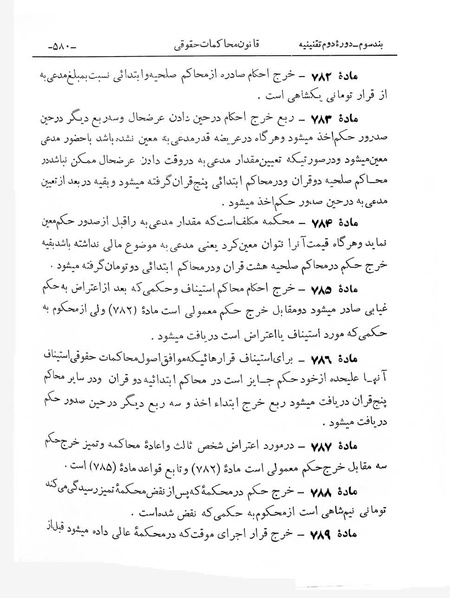 بند سوم ـ دورهٔ دوم تقنینیه قانون محاکمات حقوقی ـ۵۸۰ـ
مادهٔ ۷۸۲ ـ خرج احکام صادره از محاکم صلحیه و ابتدائی نسبت بمبلغ مدعی به
از قرار تومانی یکشاهی است .
مادهٔ ۷۸۳ ـ ربع خرج احکام در حین دادن عرضحال و سه ربع دیگر در حین
صدور حکم اخذ میشود و هر گاه در عریضه قدر مدعی به معین نشده باشد با حضور مدعی
معین میشود و در صورتیکه تعیین مقدار مدعی به در وقت دادن عرضحال ممکن نباشد در
محاکم صلحیه دو قران و در محاکم ابتدائی پنج قران گرفته میشود و بقیه در بعد از تعین
مدعی به در حین صدور حکم اخذ میشود .
مادهٔ ۷۸۴ ـ محکمه مکلف است که مقدار مدعی به را قبل از صدور حکم معین
نماید و هر گاه قیمت آنرا نتوان معین کرد یعنی مدعی به موضوع مالی نداشته باشد بقیه
خرج حکم در محاکم صلحیه هشت قران و در محاکم ابتدائی دو تومان گرفته میشود .
مادهٔ ۷۸۵ ـ خرج احکام محاکم استیناف و حکمی که بعد از اعتراض به حکم
غیابی صادر میشود دو مقابل خرج حکم معمولی است مادهٔ (۷۸۲) ولی از محکوم به
حکمی که مورد استیناف یا اعتراض است دریافت میشود .
مادهٔ ۷۸۶ ـ برای استیناف قرار هائیکه موافق اصول محاکمات حقوقی استیناف
آنها علیحده از خود حکم جایز است در محاکم ابتدائیه دو قران و در سایر محاکم
پنج قران دریافت میشود ربع خرج ابتداء اخذ و سه ربع دیگر در حین صدور حکم
دریافت میشود .
مادهٔ ۷۸۷ ـ در مورد اعتراض شخص ثالث و اعادهٔ محاکمه و تمیز خرج حکم
سه مقابل خرج حکم معمولی است مادهٔ (۷۸۲) و تابع قواعد مادهٔ (۷۸۵) است .
مادهٔ ۷۸۸ ـ خرج حکم در محکمهٔ که پس از نقض محکمهٔ تمیز رسیدگی می کند
تومانی نیم شاهی است از محکوم به حکمی که نقض شده است .
مادهٔ ۷۸۹ ـ خرج قرار اجرای موقت که در محکمهٔ عالی داده میشود قبل از